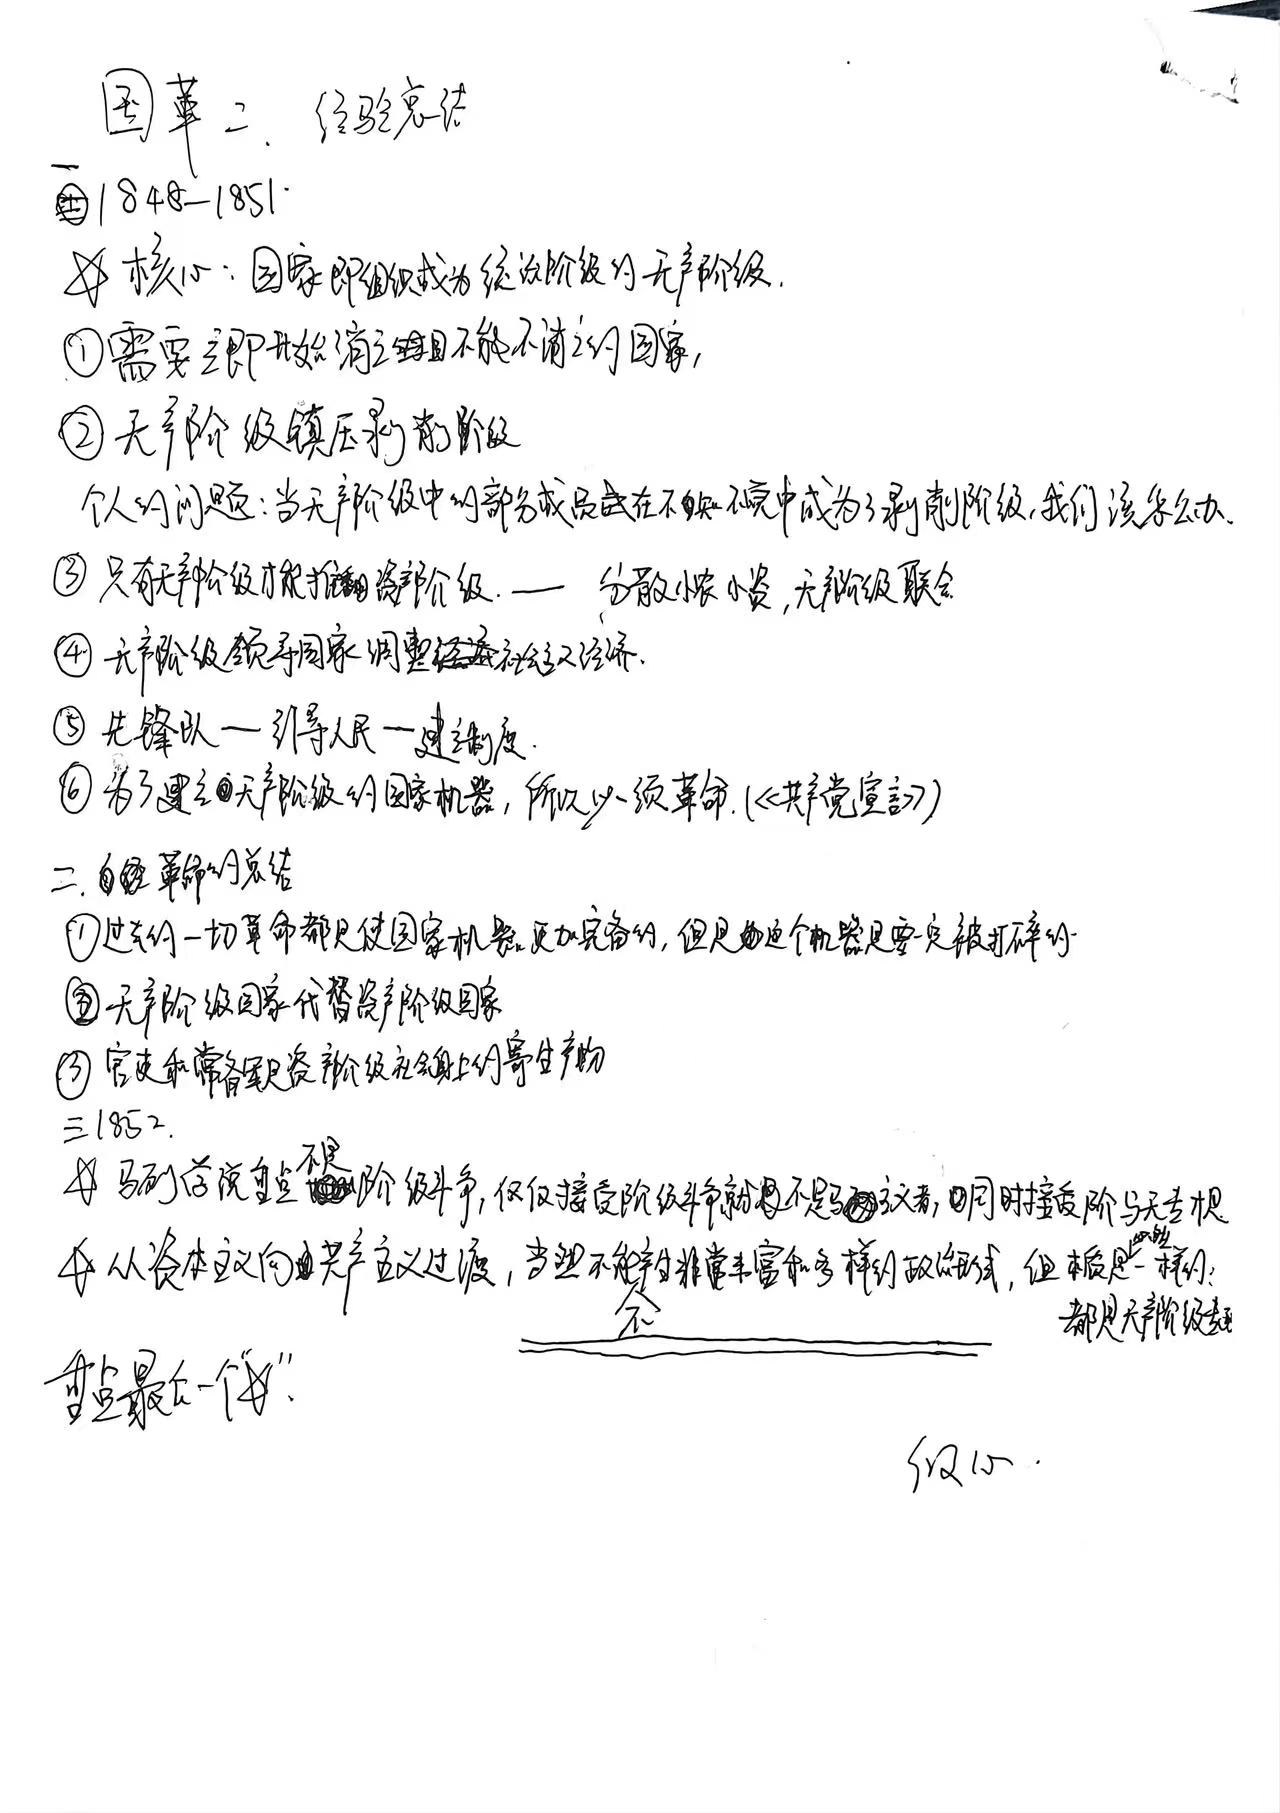 国革二、经验总结
一
1848—1851.
☆ 核心：国家即组织成为统治阶级的无产阶级.
① 需要立即开始消亡且不能不消亡的国家,
② 无产阶级镇压剥削阶级
个人的问题：当无产阶级中的部分成员在不知不觉中成为了剥削阶级,我们该怎么办.
③ 只有无产阶级才能推翻资产阶级. —— 分散小农小资,无产阶级联合
④ 无产阶级领导国家调整社会主义经济.
⑤ 先锋队—引导人民—建立制度.
⑥ 为了建立无产阶级的国家机器,所以必须革命.(《共产党宣言》)
二. 革命的总结
① 过去的一切革命都是使国家机器更加完备的,但是这个机器是要一定被打碎的.
② 无产阶级国家代替资产阶级国家
③ 官吏和常备军是资产阶级社会身上的寄生物
三 1852.
☆ 马列学说重点不是阶级斗争,仅仅接受阶级斗争就不是马主义者,同时接受阶与无专才是
☆ 从资本主义向共产主义过渡,当然不能不产生非常丰富和多样的政治形式,但本质必然是一样的:
都是无产阶级专
重点最后一个"☆".
级心.